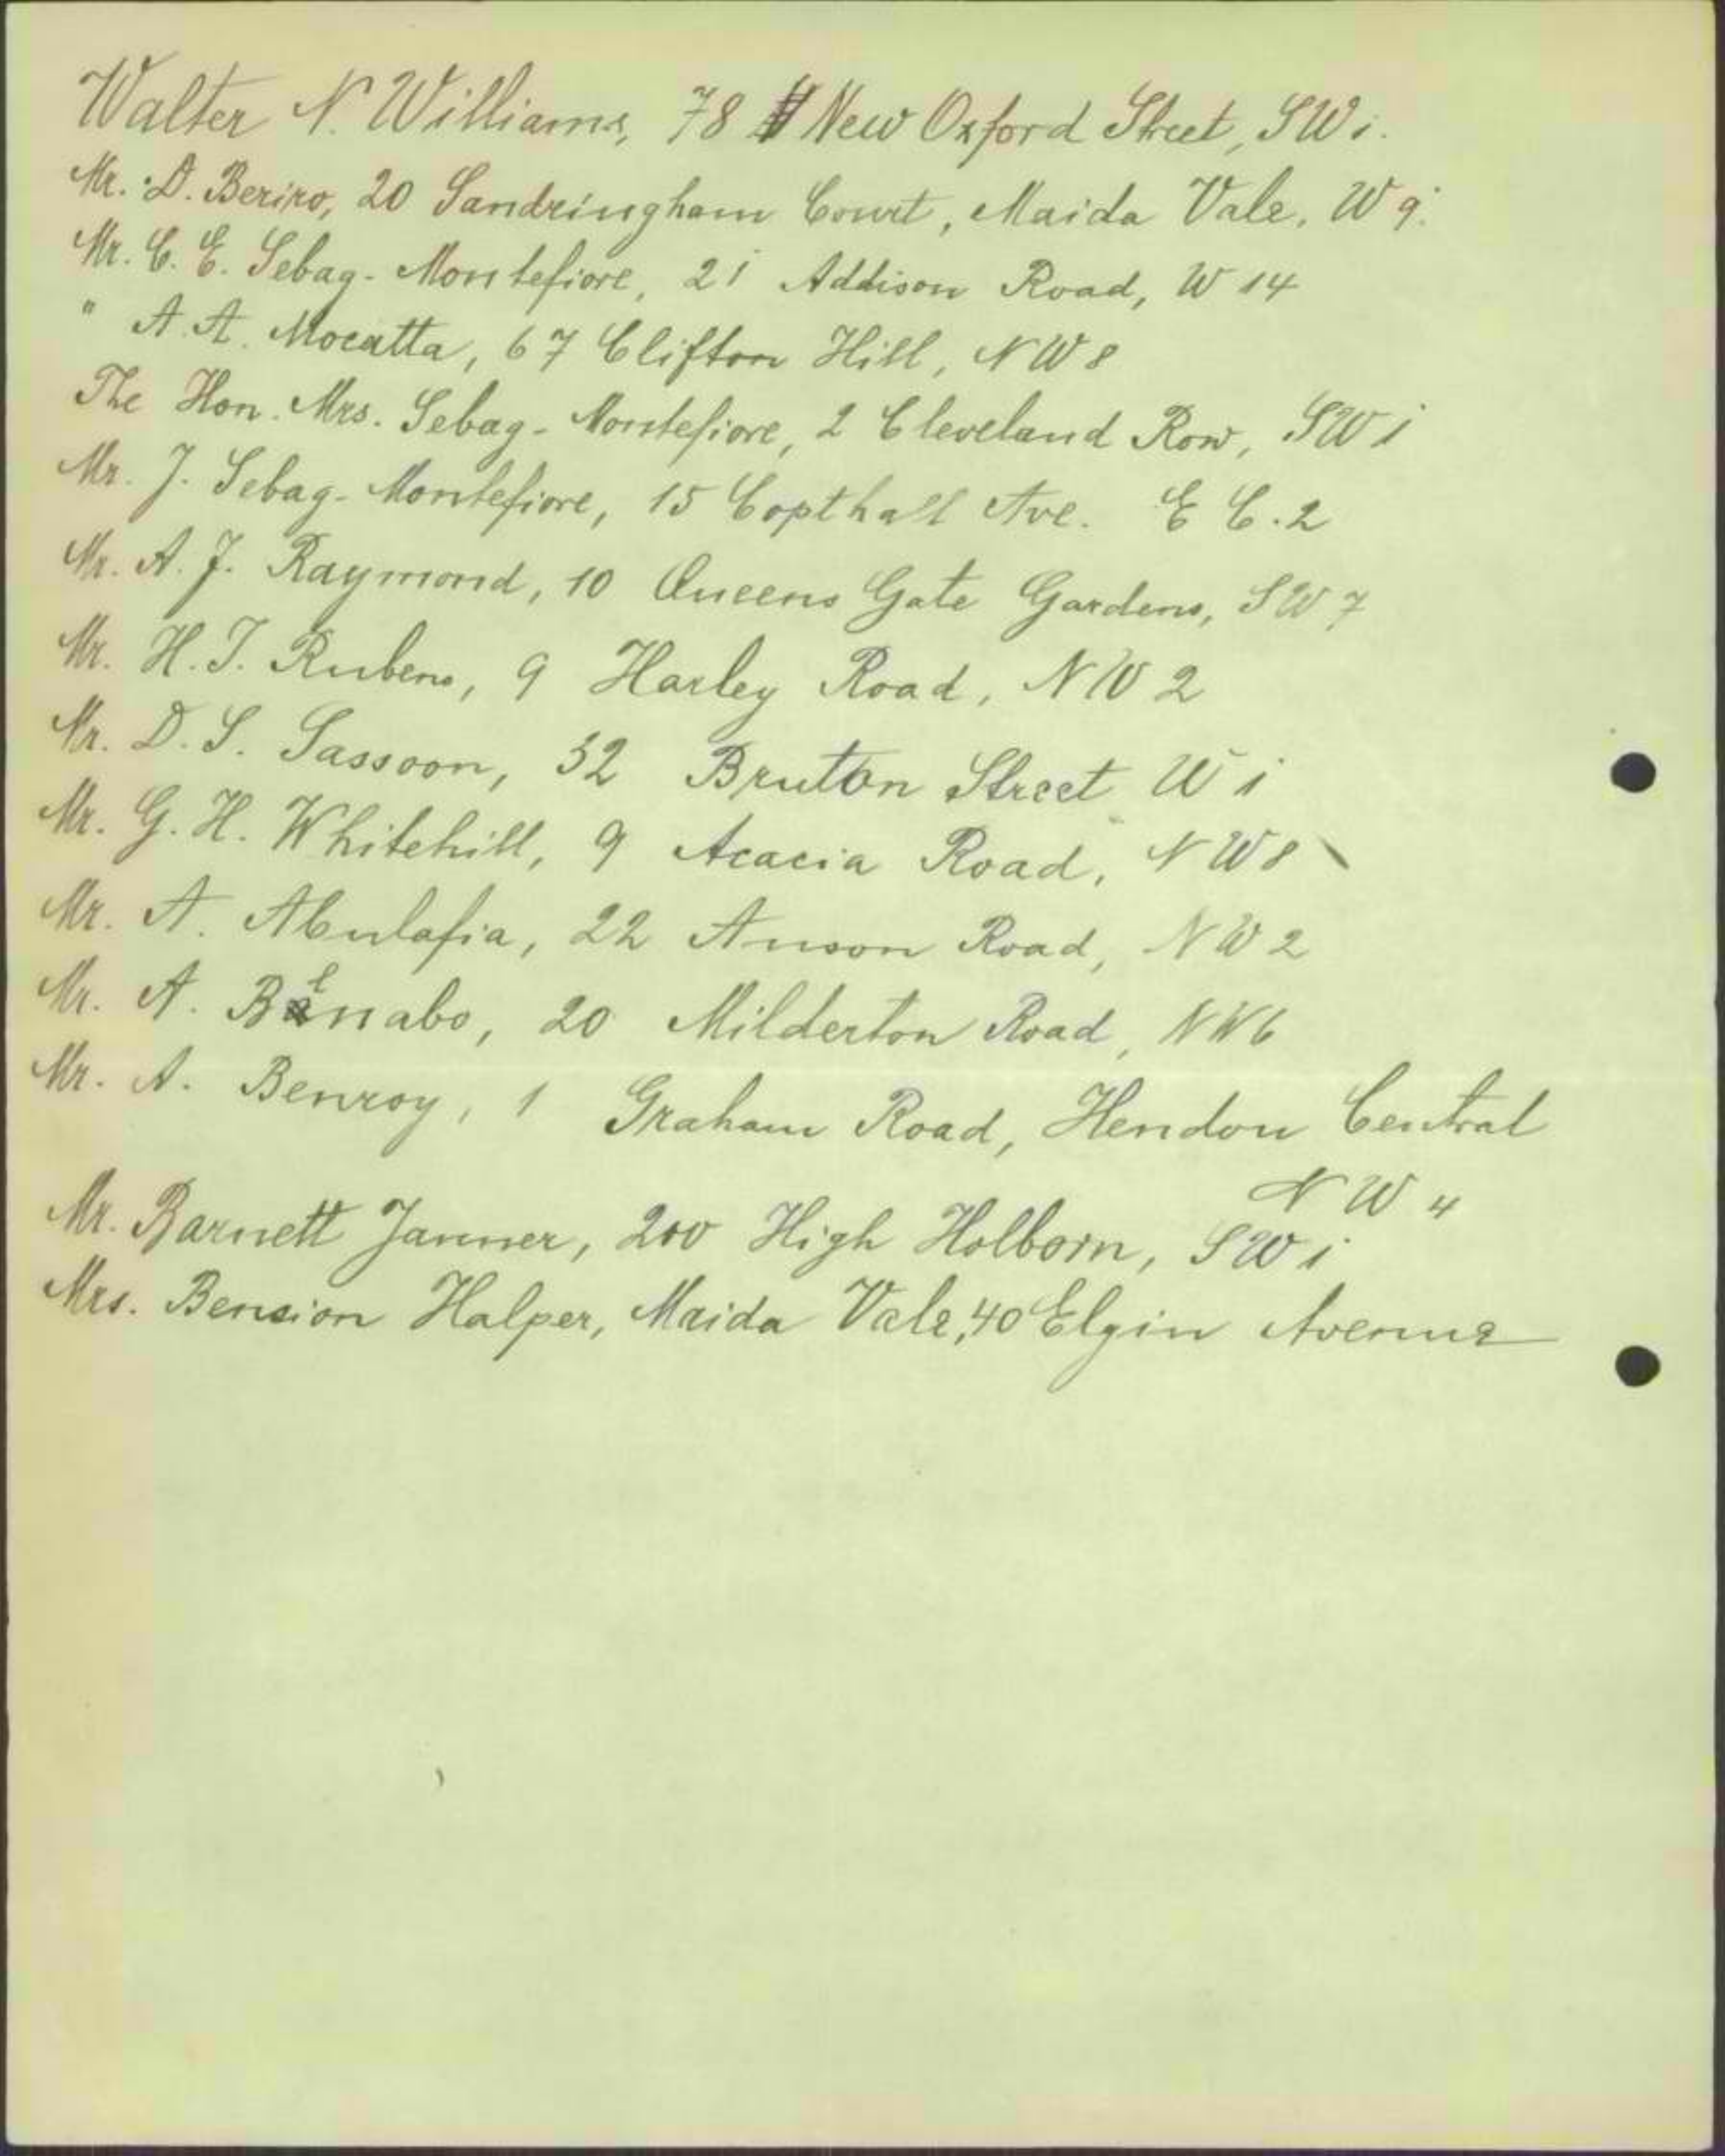 Walter N. Williams, 78 New Oxford Street, SW1.
Mr. D. Beriro, 20 Sandringham Court, Maida Vale, W 9.
Mr. C. E. Sebag-Montefiore, 21 Addison Road, W 14
" A. A. Mocatta, 67 Clifton Hill, NW 8
The Hon. Mrs. Sebag-Montefiore, 2 Cleveland Row, SW 1
Mr. J. Sebag-Montefiore, 15 Copthall Ave. E C.2
Mr. A. J. Raymond, 10 Queens Gate Gardens, SW 7
Mr. H. J. Rubens, 9 Harley Road, NW 2
Mr. D. S. Sassoon, 32 Bruton Street W 1
Mr. G. H. Whitehill, 9 Acacia Road, NW 8
Mr. A. Abulafia, 22 Anson Road, NW 2
Mr. A. Benabo, 20 Milderton Road, NW6
Mr. A. Benroy, 1 Graham Road, Hendon Central
NW 4
Mr. Barnett Janner, 200 High Holborn, SW 1
Mrs. Bension Halper, Maida Vale, 40 Elgin Avenue